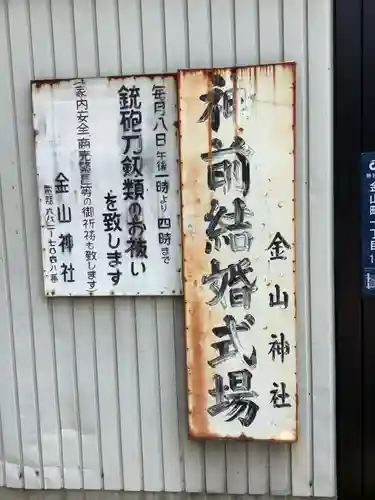 毎月八日午後一時より四時まで
銃砲刀剱類のお祓い
を致します
(家内安全、商売繁昌等の御祈祷も致します)
金山神社
神前結婚式場
金山神社
金山町一丁目